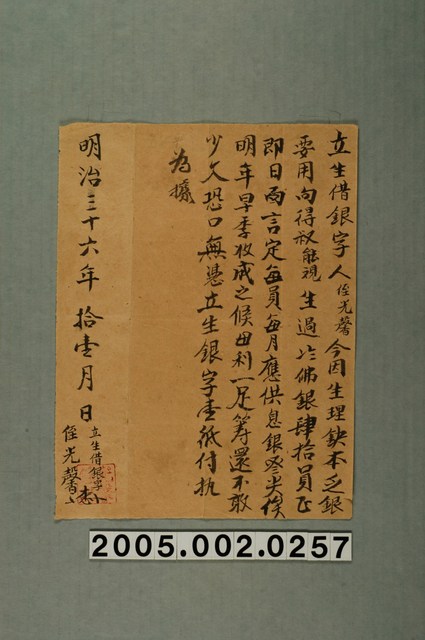 立生借銀字人侄光馨今因生理缺本乏銀
要用向得叔能視生過比佛銀肆拾員正
即日面言定每員每月應供息銀癸尖候
明年早季收成之候毋利一足籌還不敢
少欠恐口無憑立生銀字壹紙付執
為據
明治三十六年拾壹月 日
立生借銀字
侄光馨
2005.002.0257